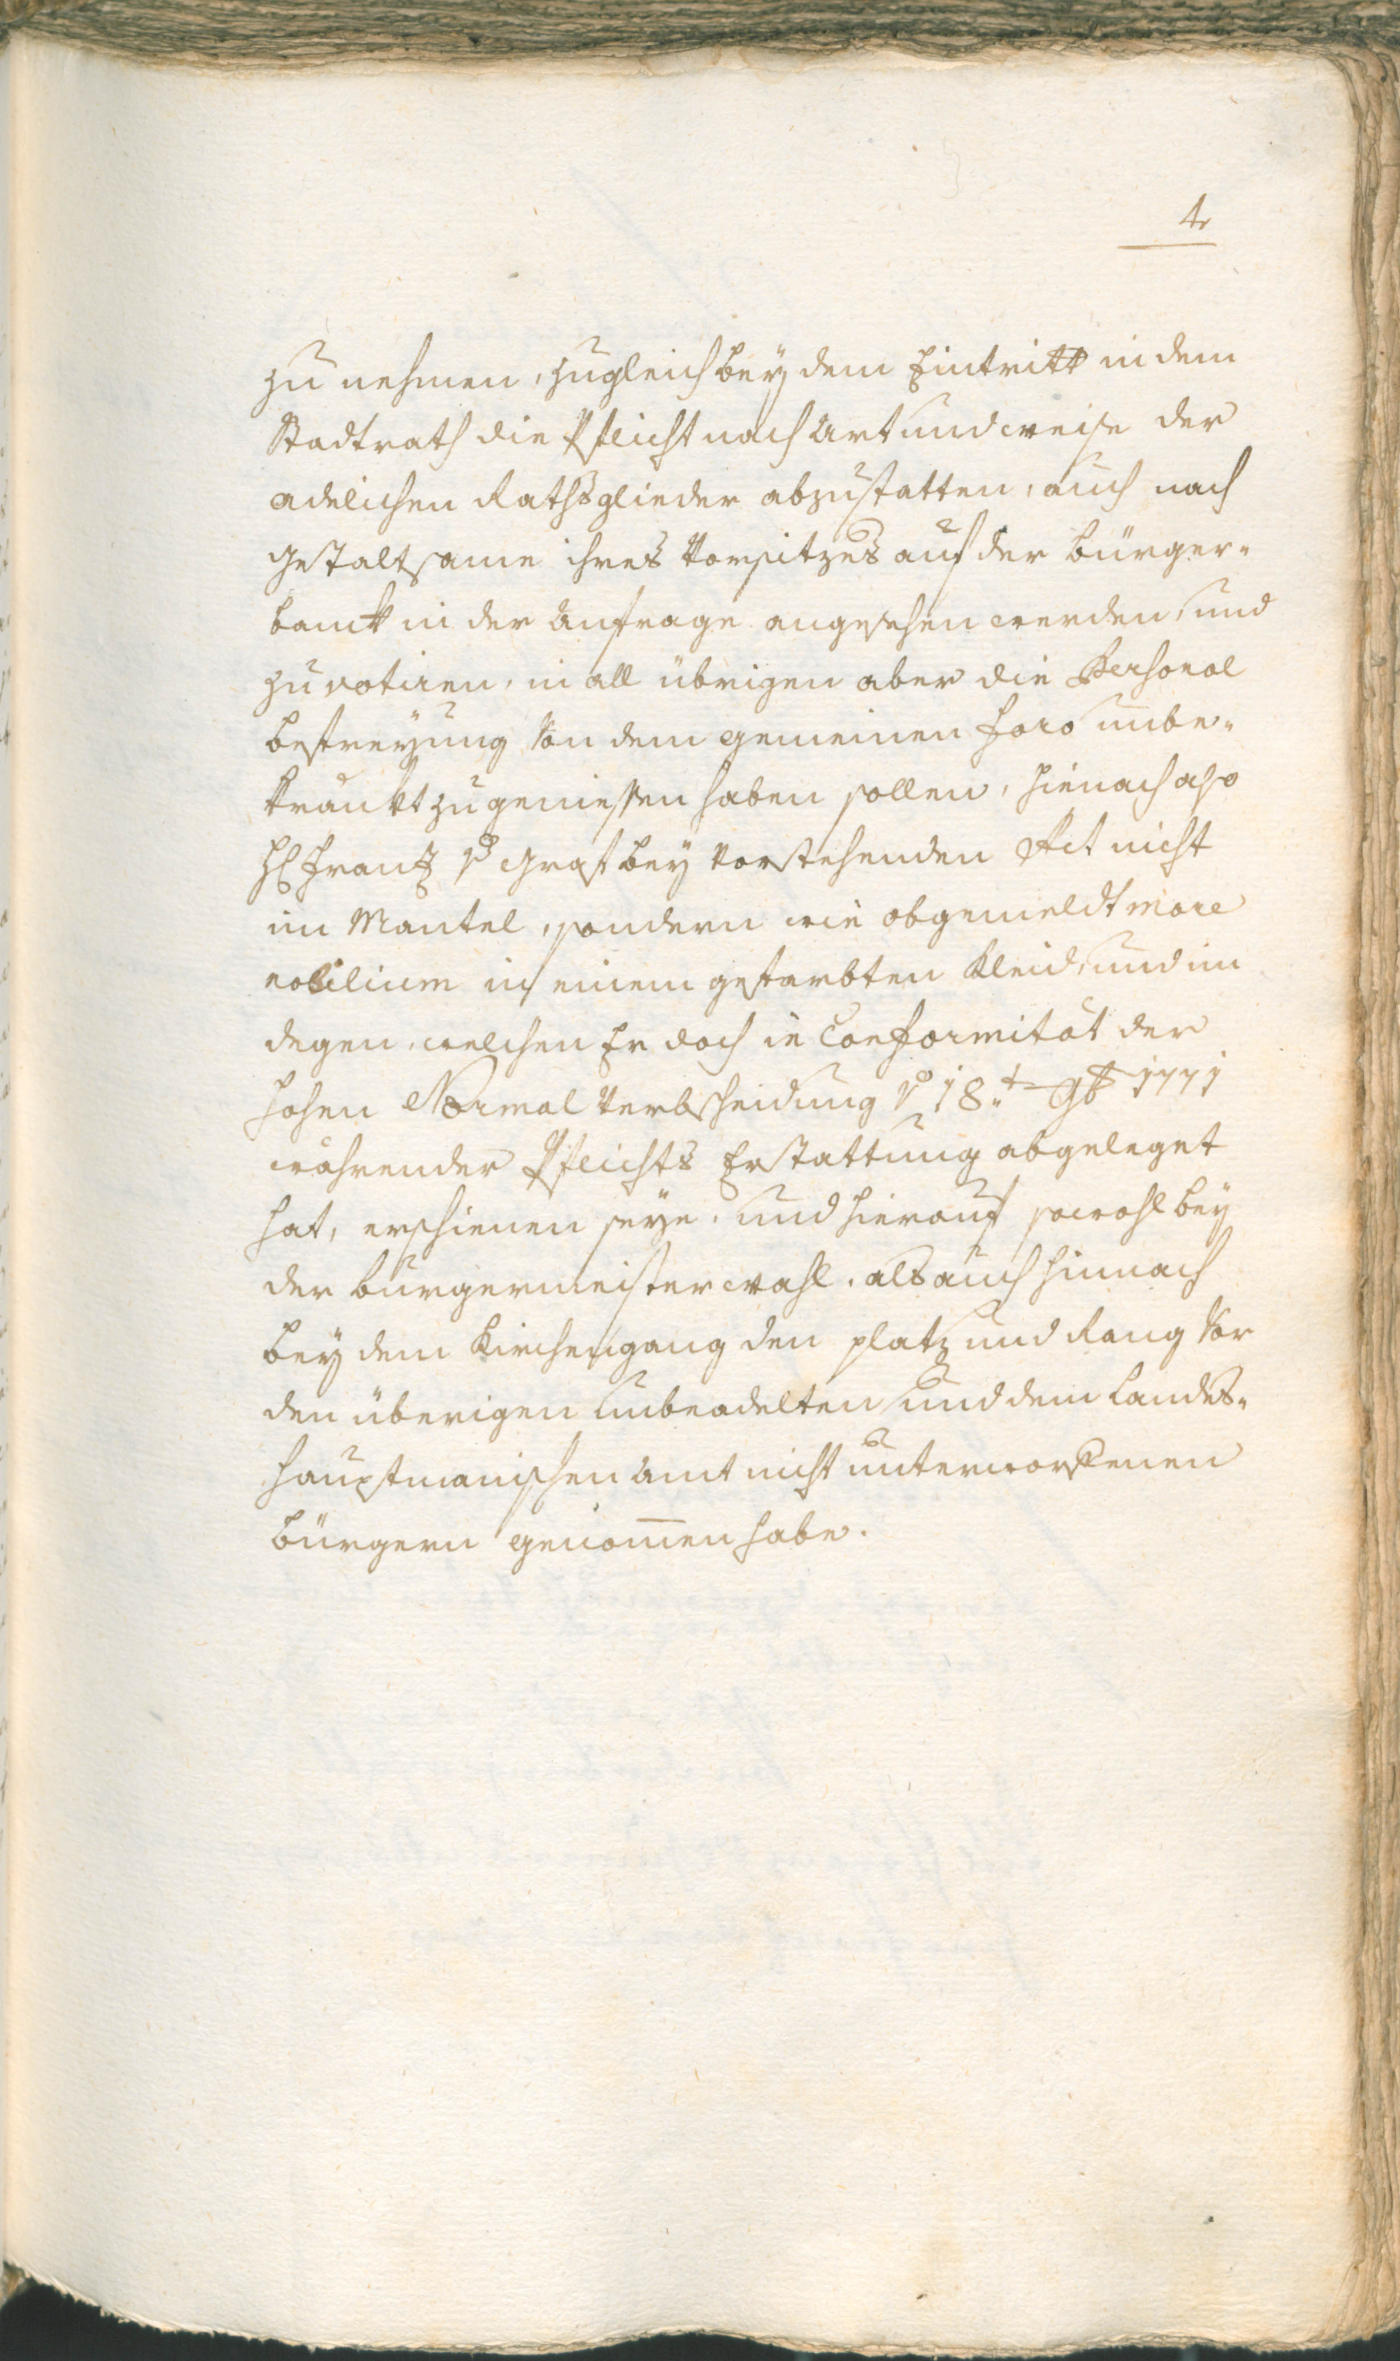 4
zu nehmen, zugleich bey dem Eintritt in dem
Stadtrath die Pflicht nach Art und weise der
adelichen Rathsglieder abzustatten, auch nach
gestaltsame ihres Vorsitzes auf der bürger-
banck in der Anfrage angesehen werden, und
zu votiren, in all übrigen aber die Personal
befreyung Von dem gemeinen foro unbe-
kränkt zu geniessen haben sollen, hienach also
H Frantz v Graf bey vorstehenden Act nicht
im Mantel, sondern wie obgemeldt more
nobilium in einem gefarbten Kleid, und im
degen, welchen Er doch in Conformität der
hohen Normal Verbscheidung vo 18.t 9b 1771
währender Pflichts Erstattung abgeleget
hat, erschienen seye, und hierauf sowohl bey
der burgermeisterwahl, als auch hinnach
bey dem Kirchengang den platz und Rang Vor
den überigen unbeadelten und dem Landes-
hauptmanischen Amt nicht unterworffenen
bürgern genom̅en habe.